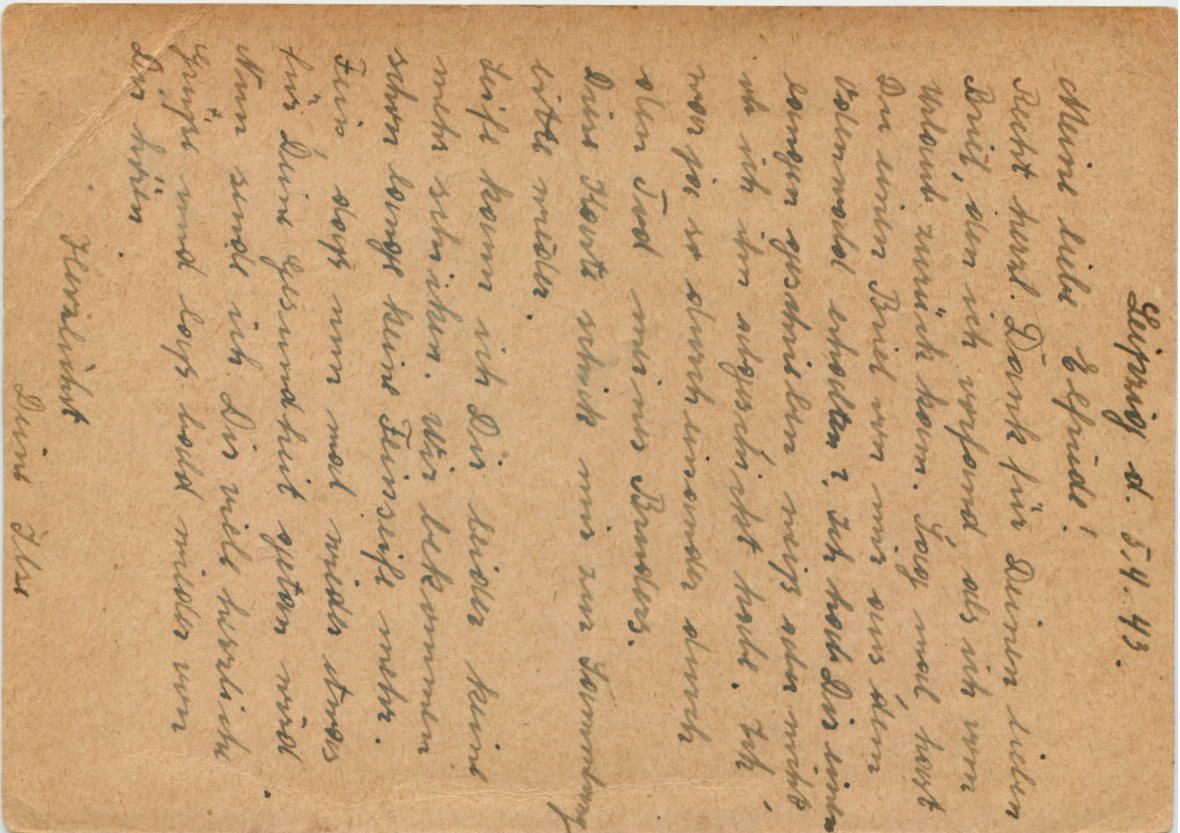 Leipzig d. 5.4.43.
Meine liebe Elfriede!
Recht herzl. Dank für Deinen lieben
Brief, den ich vorfand als ich vom
Urlaub zurück kam. Sag mal hast
Du einen Brief von mir aus dem
erhalten? Ich hab Dir einen
langen geschrieben weiß aber nicht
ob ich ihn abgeschickt habe. Ich
war ja so durcheinander durch
den Tod meines Bruders.
Diese Karte schick mir zur Sammlung
bitte wieder.
Seife kann ich Dir leider keine
mehr schicken. Wir bekommen
schon lange keine Feinseife mehr.
Fein das nun mal wieder etwas
für Deine Gesundheit getan wird
Nun sende ich Dir viele herzliche
Grüße und lass bald wieder von
Dir hören
Herzlichst
Deine Ilse